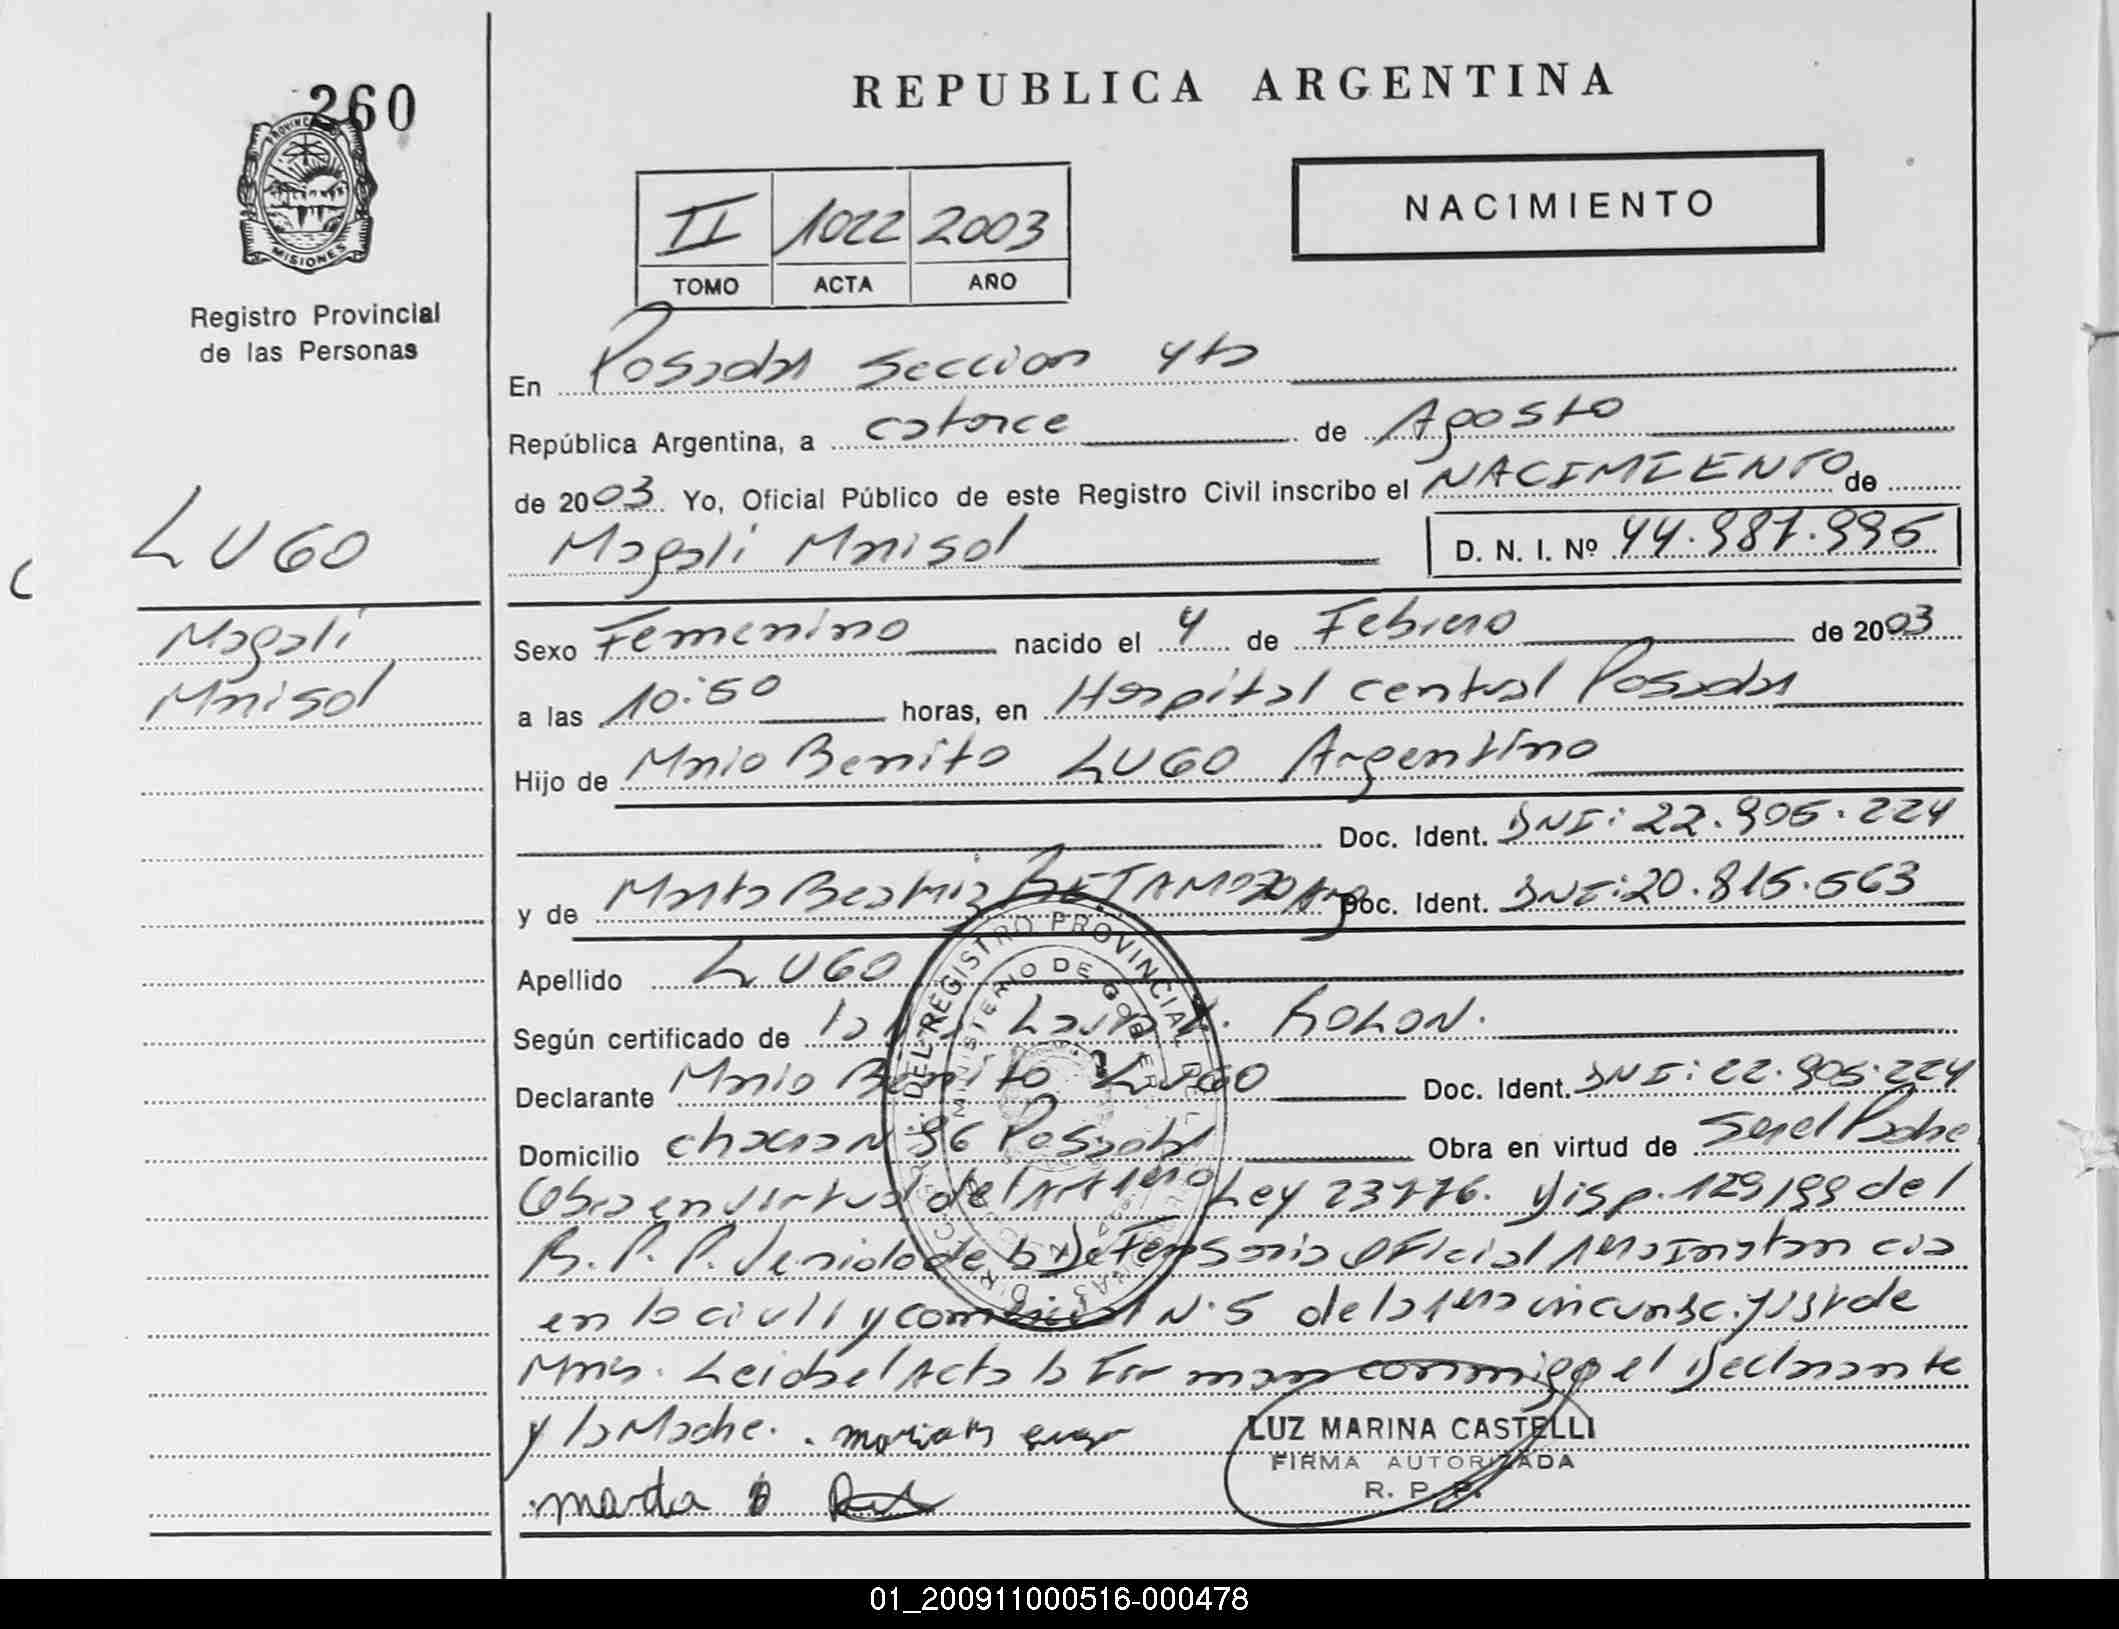 260
PROVINCIA
MISIONES
Registro Provincial
de las Personas
REPUBLICA ARGENTINA
II 1022 2003
TOMO ACTA AÑO
NACIMIENTO
En Posadas Seccion 4ta
República Argentina, a catorce de Agosto
de 2003 Yo, Oficial Público de este Registro Civil inscribo el NACIMIENTO de
Magali Marisol D. N. I. Nº 44.987.996
LUGO
Magali
Marisol
Sexo Femenino nacido el 4 de Febrero de 2003
a las 10:50 horas, en Hospital central Posadas
Hijo de Mario Benito LUGO Argentino
Doc. Ident. DNI: 22.905.224
y de Marta Beatriz RETAMOZO Arg Doc. Ident. DNI: 20.815.563
Apellido LUGO
Según certificado de la ROLON.
Declarante Mario Benito LUGO Doc. Ident. DNI: 22.905.224
Domicilio chacra N 96 Posadas Obra en virtud de Ser el Padre
Obra en virtud del Art 1ero Ley 23776. Disp. 129/99 del
R. P. P. Venido de la Defensoria Oficial 1era Instancia
en lo civil y comercial N. 5 de la 1era circunsc. Jud de
Mnes. Leida el Acta la Firman conmigo el Declarante
y la Madre.
marta B
LUZ MARINA CASTELLI
FIRMA AUTORIZADA
R. P. P.
DEL REGISTRO PROVINCIAL DE L
MINISTERIO DE GOBIER
01_200911000516-000478